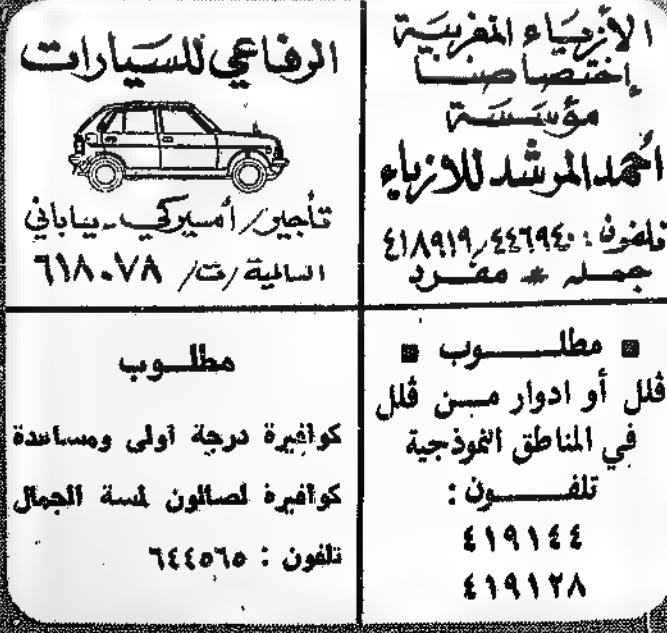 الأزياء المغربية
إختصاصنا
مؤسسة
أحمد المرشد للازياء
تلفون : ٤٤٦٩٤٠ / ٤١٨٩١٩
جمله * مفرد
الرفاعي للسيارات
تأجير / أمسيركي - ياباني
السالمية / ت / ٦١٨٠٧٨
مطلــوب
ڤلل أو ادوار مــن ڤلل
في المناطق النموذجية
تلفــــون :
٤١٩١٤٤
٤١٩١٢٨
مطلــوب
كوافيرة درجة أولى ومساعدة
كوافيرة لصالون لمسة الجمال
تلفون : ٦٤٤٥٦٥